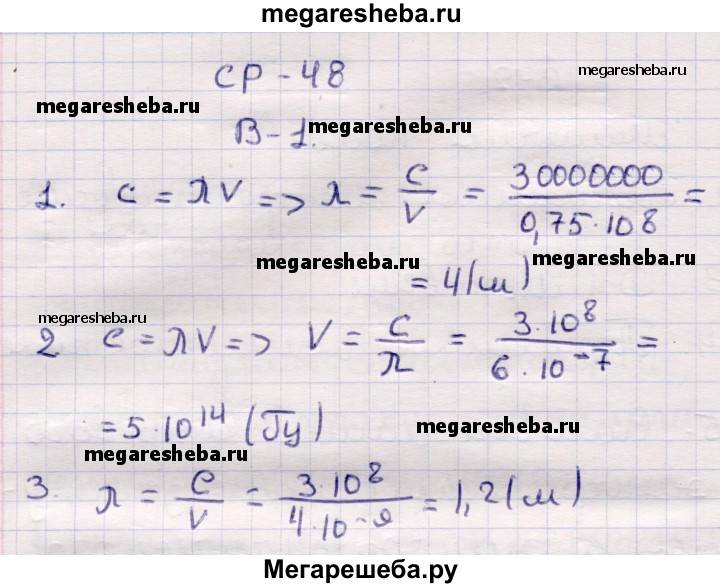 megaresheba.ru
СР - 48
megaresheba.ru
megaresheba.ru
В - 1.
megaresheba.ru
1. c = λV => λ = c/V = 30000000/0,75·108 =
megaresheba.ru
megaresheba.ru
= 4(м)
megaresheba.ru
2 c = λV => V = c/λ = 3·10⁸/6·10⁻⁷ =
= 5·10¹⁴ (Гц)
megaresheba.ru
megaresheba.ru
3. λ = c/V = 3·10⁸/4·10⁻⁹ = 1,2(м)
Мегарешеба.ру